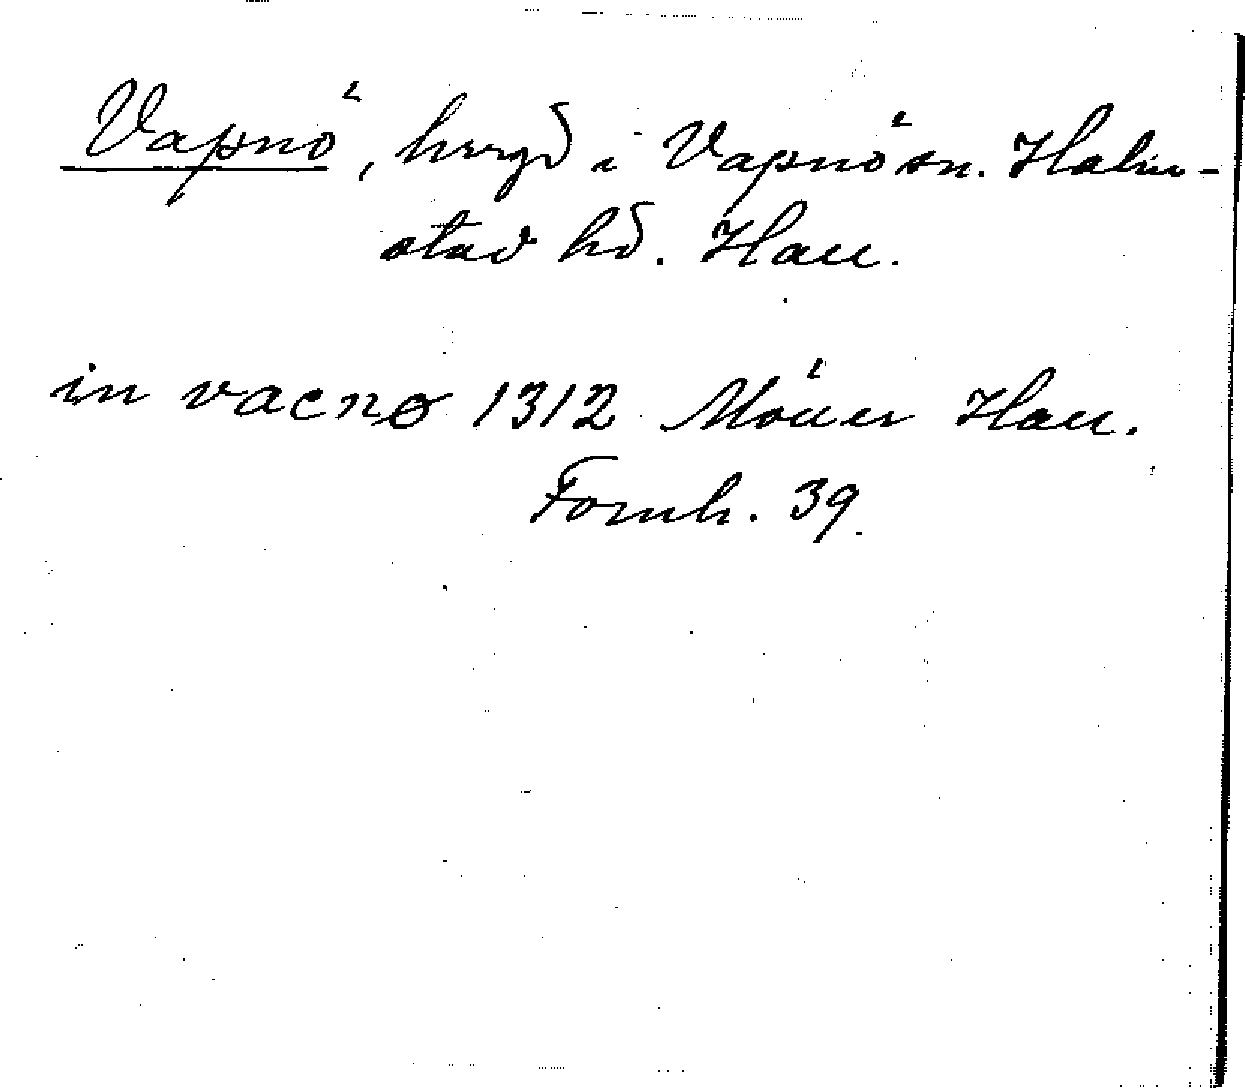 Vapnö, hrrgd i Vapnö sn. Halm-
stad hd. Hall.
in vacnø 1312 Möller Hall.
Fornh. 39.